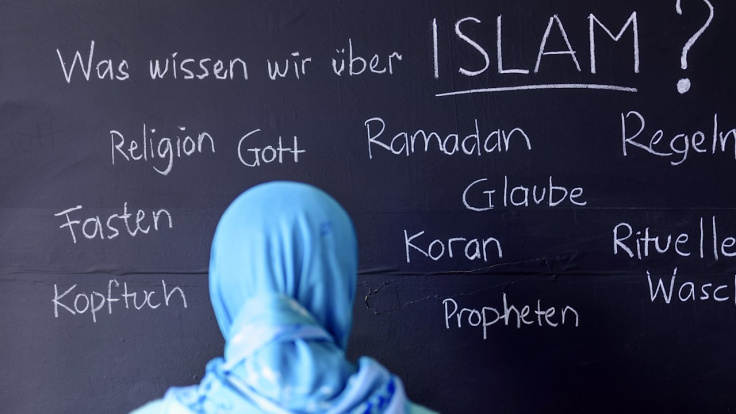 Was wissen wir über ISLAM?
Religion Gott Ramadan Regeln
Glaube
Fasten Koran Rituelle
Kopftuch Propheten